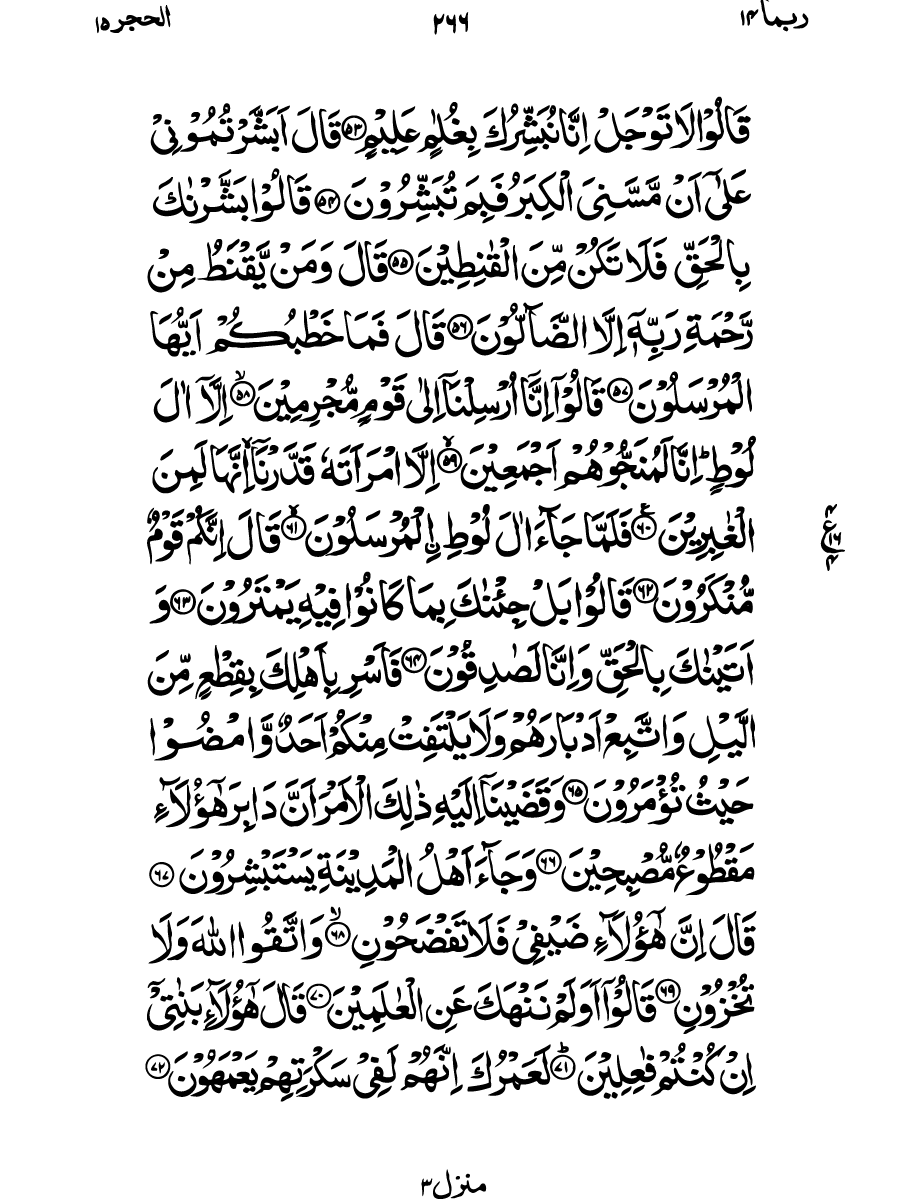 ربما ١۴
٢٦٦
الحجر ١۵
قَالُوْا لَا تَوْجَلْ اِنَّا نُبَشِّرُكَ بِغُلٰمٍ عَلِيْمٍ ۵۳ قَالَ اَبَشَّرْتُمُوْنِيْ
عَلٰٓى اَنْ مَّسَّنِيَ الْكِبَرُ فَبِمَ تُبَشِّرُوْنَ ۵۴ قَالُوْا بَشَّرْنٰكَ
بِالْحَقِّ فَلَا تَكُنْ مِّنَ الْقٰنِطِيْنَ ۵۵ قَالَ وَمَنْ يَّقْنَطُ مِنْ
رَّحْمَةِ رَبِّهٖٓ اِلَّا الضَّآلُّوْنَ ۵۶ قَالَ فَمَا خَطْبُكُمْ اَيُّهَا
الْمُرْسَلُوْنَ ۵۷ قَالُوْٓا اِنَّآ اُرْسِلْنَآ اِلٰى قَوْمٍ مُّجْرِمِيْنَ ۙ۵۸ اِلَّآ اٰلَ
لُوْطٍ ؕ اِنَّا لَمُنَجُّوْهُمْ اَجْمَعِيْنَ ۙ۵۹ اِلَّا امْرَاَتَهٗ قَدَّرْنَآ ۙ اِنَّهَا لَمِنَ
الْغٰبِرِيْنَ ۶۰ فَلَمَّا جَآءَ اٰلَ لُوْطِ ِۨالْمُرْسَلُوْنَ ۙ۶۱ قَالَ اِنَّكُمْ قَوْمٌ
مُّنْكَرُوْنَ ۶۲ قَالُوْا بَلْ جِئْنٰكَ بِمَا كَانُوْا فِيْهِ يَمْتَرُوْنَ ۶۳ وَ
اَتَيْنٰكَ بِالْحَقِّ وَاِنَّا لَصٰدِقُوْنَ ۶۴ فَاَسْرِ بِاَهْلِكَ بِقِطْعٍ مِّنَ
الَّيْلِ وَاتَّبِعْ اَدْبَارَهُمْ وَلَا يَلْتَفِتْ مِنْكُمْ اَحَدٌ وَّامْضُوْا
حَيْثُ تُؤْمَرُوْنَ ۶۵ وَقَضَيْنَآ اِلَيْهِ ذٰلِكَ الْاَمْرَ اَنَّ دَابِرَ هٰٓؤُلَآءِ
مَقْطُوْعٌ مُّصْبِحِيْنَ ۶۶ وَجَآءَ اَهْلُ الْمَدِيْنَةِ يَسْتَبْشِرُوْنَ ۶۷
قَالَ اِنَّ هٰٓؤُلَآءِ ضَيْفِيْ فَلَا تَفْضَحُوْنِ ۙ۶۸ وَاتَّقُوا اللّٰهَ وَلَا
تُخْزُوْنِ ۶۹ قَالُوْٓا اَوَلَمْ نَنْهَكَ عَنِ الْعٰلَمِيْنَ ۷۰ قَالَ هٰٓؤُلَآءِ بَنٰتِيْٓ
اِنْ كُنْتُمْ فٰعِلِيْنَ ؕ۷۱ لَعَمْرُكَ اِنَّهُمْ لَفِيْ سَكْرَتِهِمْ يَعْمَهُوْنَ ۷۲
۴
ع ١٦
۴
منزل ۳